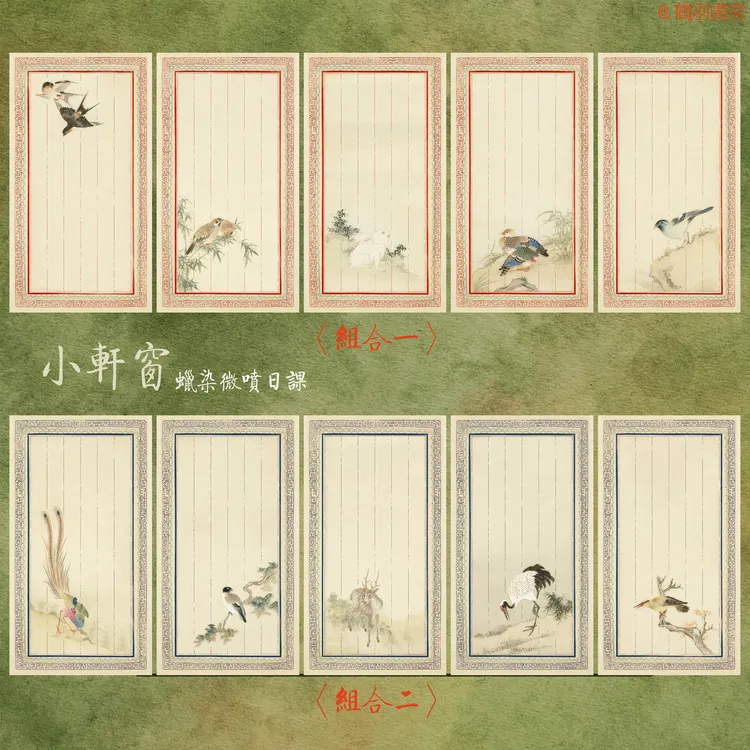 〈組合一〉
小軒窗 蠟染微噴日課
〈組合二〉